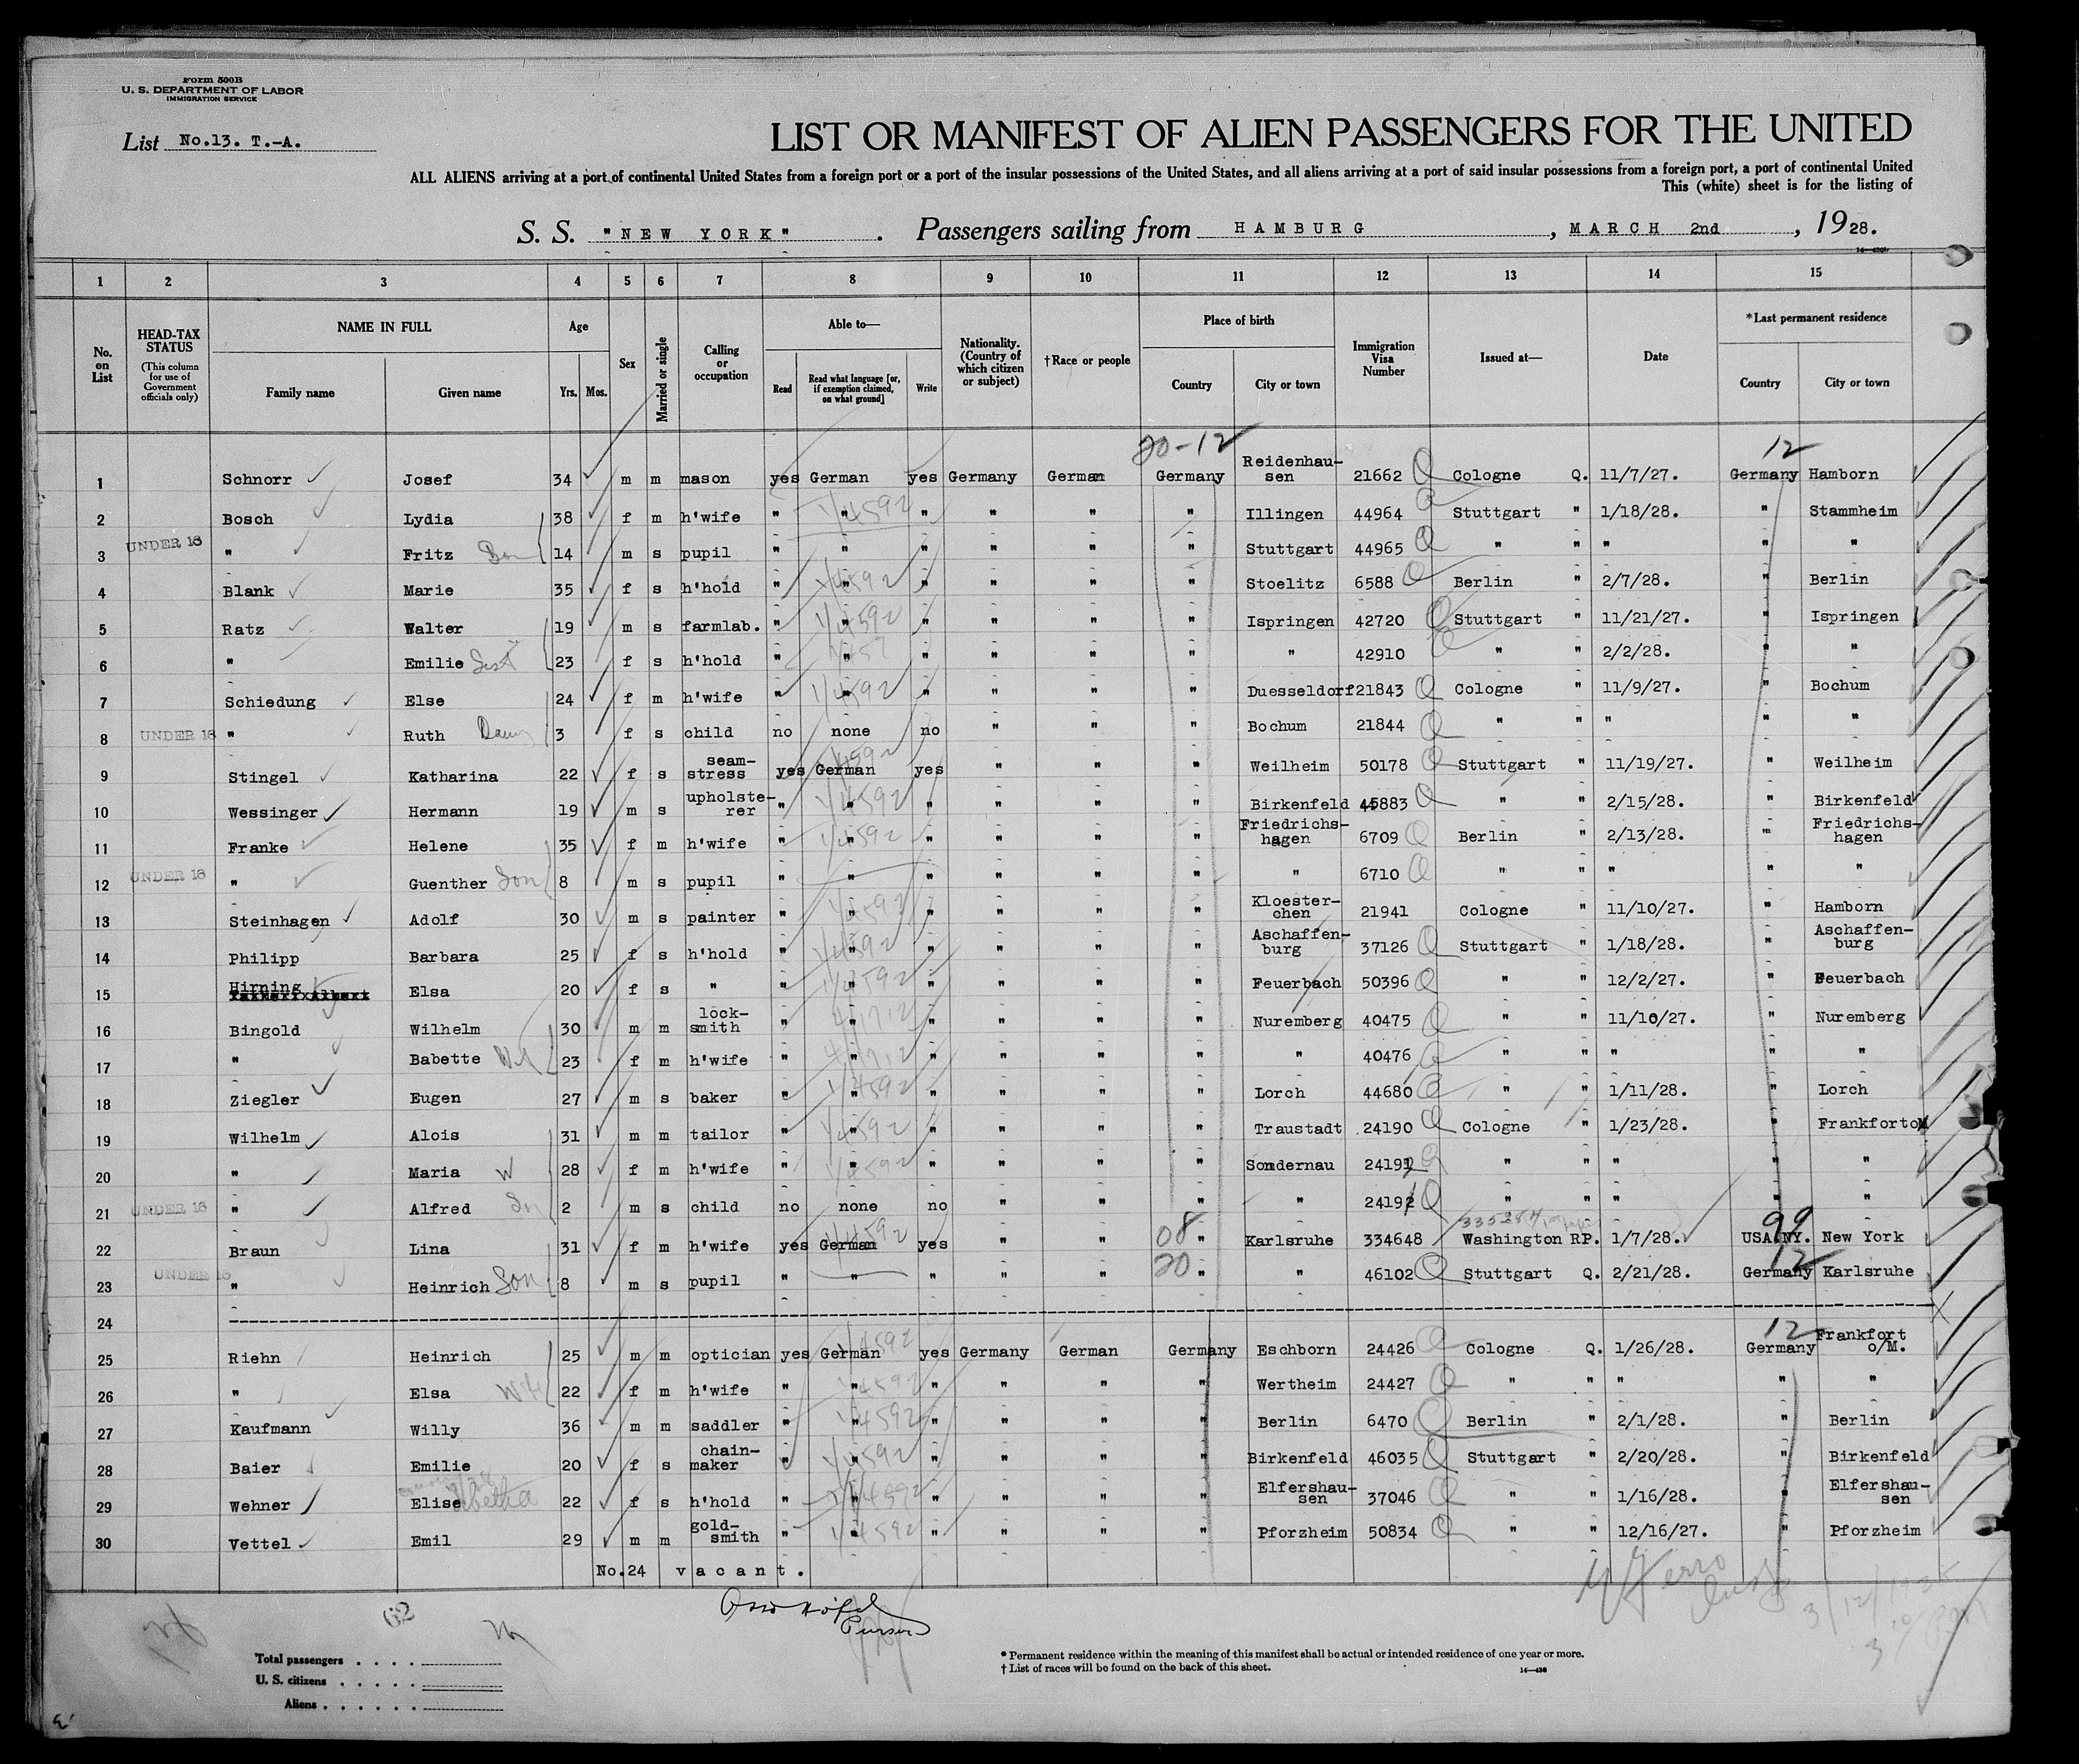 Form 500B
U. S. DEPARTMENT OF LABOR
IMMIGRATION SERVICE
List No.13. T.-A.
LIST OR MANIFEST OF ALIEN PASSENGERS FOR THE UNITED
ALL ALIENS arriving at a port of continental United States from a foreign port or a port of the insular possessions of the United States, and all aliens arriving at a port of said insular possessions from a foreign port, a port of continental United
This (white) sheet is for the listing of
S. S. "NEW YORK". Passengers sailing from HAMBURG, MARCH 2nd, 1928.
1 2 3 4 5 6 7 8 9 10 11 12 13 14 15
No. on List
HEAD-TAX STATUS (This column for use of Government officials only)
NAME IN FULL Family name Given name
Age Yrs. Mos.
Sex
Married or single
Calling or occupation
Able to— Read Read what language [or, if exemption claimed, on what ground] Write
Nationality. (Country of which citizen or subject)
†Race or people
Place of birth Country City or town
Immigration Visa Number
Issued at—
Date
*Last permanent residence Country City or town
20-12 12
1 Schnorr Josef 34 m m mason yes German yes Germany German Germany Reidenhau-sen 21662 Cologne Q. 11/7/27. Germany Hamborn
2 Bosch Lydia 38 f m h'wife " " " " " " Illingen 44964 Stuttgart " 1/18/28. " Stammheim
3 UNDER 16 " Fritz 14 m s pupil " " " " " " Stuttgart 44965 " " " " "
4 Blank Marie 35 f s h'hold " " " " " " Stoelitz 6588 Berlin " 2/7/28. " Berlin
5 Ratz Walter 19 m s farmlab. " " " " " " Ispringen 42720 Stuttgart " 11/21/27. " Ispringen
6 " Emilie Sist 23 f s h'hold " " " " " " " 42910 " " 2/2/28. " "
7 Schiedung Else 24 f m h'wife " " " " " " Duesseldorf 21843 Cologne " 11/9/27. " Bochum
8 UNDER 16 " Ruth 3 f s child no none no " " " Bochum 21844 " " " " "
9 Stingel Katharina 22 f s seam-stress yes German yes " " " Weilheim 50178 Stuttgart " 11/19/27. " Weilheim
10 Wessinger Hermann 19 m s upholste-rer " " " " " " Birkenfeld 45883 " " 2/15/28. " Birkenfeld
11 Franke Helene 35 f m h'wife " " " " " " Friedrichs-hagen 6709 Berlin " 2/13/28. " Friedrichs-hagen
12 UNDER 16 " Guenther Son 8 m s pupil " " " " " " " 6710 " " " " "
13 Steinhagen Adolf 30 m s painter " " " " " " Kloester-chen 21941 Cologne " 11/10/27. " Hamborn
14 Philipp Barbara 25 f s h'hold " " " " " " Aschaffen-burg 37126 Stuttgart " 1/18/28. " Aschaffen-burg
15 Hirning Elsa 20 f s " " " " " " " Feuerbach 50396 " " 12/2/27. " Feuerbach
16 Bingold Wilhelm 30 m m lock-smith " " " " " " Nuremberg 40475 " " 11/10/27. " Nuremberg
17 " Babette 23 f m h'wife " " " " " " " 40476 " " " " "
18 Ziegler Eugen 27 m s baker " " " " " " Lorch 44680 " " 1/11/28. " Lorch
19 Wilhelm Alois 31 m m tailor " " " " " " Traustadt 24190 Cologne " 1/23/28. " FrankfortoM
20 " Maria W 28 f m h'wife " " " " " " Sondernau 24192 " " " " "
21 UNDER 16 " Alfred Sn 2 m s child no none no " " " " 24191 " " " " "
22 Braun Lina 31 f m h'wife yes German yes " " 08 " Karlsruhe 334648 Washington RP. 1/7/28. 99 USA NY. New York
23 UNDER 16 " Heinrich Son 8 m s pupil " " " " " 20 " " 46102 Stuttgart Q. 2/21/28. 12 Germany Karlsruhe
24
25 Riehn Heinrich 25 m m optician yes German yes Germany German Germany Eschborn 24426 Cologne Q. 1/26/28. 12 Germany Frankfort o/M.
26 " Elsa Wife 22 f m h'wife " " " " " " Wertheim 24427 " " " " "
27 Kaufmann Willy 36 m m saddler " " " " " " Berlin 6470 Berlin " 2/1/28. " Berlin
28 Baier Emilie 20 f s chain-maker " " " " " " Birkenfeld 46035 Stuttgart " 2/20/28. " Birkenfeld
29 Wehner Elise 22 f s h'hold " " " " " " Elfershau-sen 37046 " " 1/16/28. " Elfershau-sen
30 Vettel Emil 29 m m gold-smith " " " " " " Pforzheim 50834 " " 12/16/27. " Pforzheim
No.24 vacant.
Purser
62
Total passengers
U. S. citizens
Aliens
* Permanent residence within the meaning of this manifest shall be actual or intended residence of one year or more.
† List of races will be found on the back of this sheet.